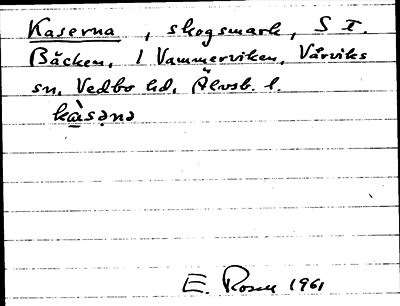 Kaserna, skogsmark, S t.
Bäcken, 1 Vammerviken, Vårviks
sn, Vedbo hd, Älvsb. l.
kàsənə
E. Rosen 1961